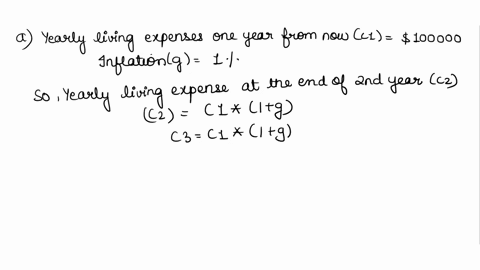 a) Yearly living expenses one year from now (C1) = $100000
Inflation(g) = 1 %.
So, Yearly living expense at the end of 2nd year (C2)
(C2) = C1 * (1+g)
C3 = C1 * (1+g)